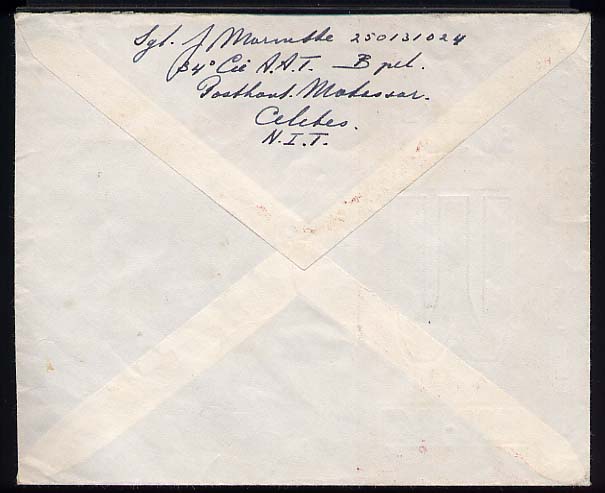 Sgt. J Marmitte 250131024
34° Cie A.A.T. B pel.
Postkant. Makassar.
Celebes.
N.I.T.